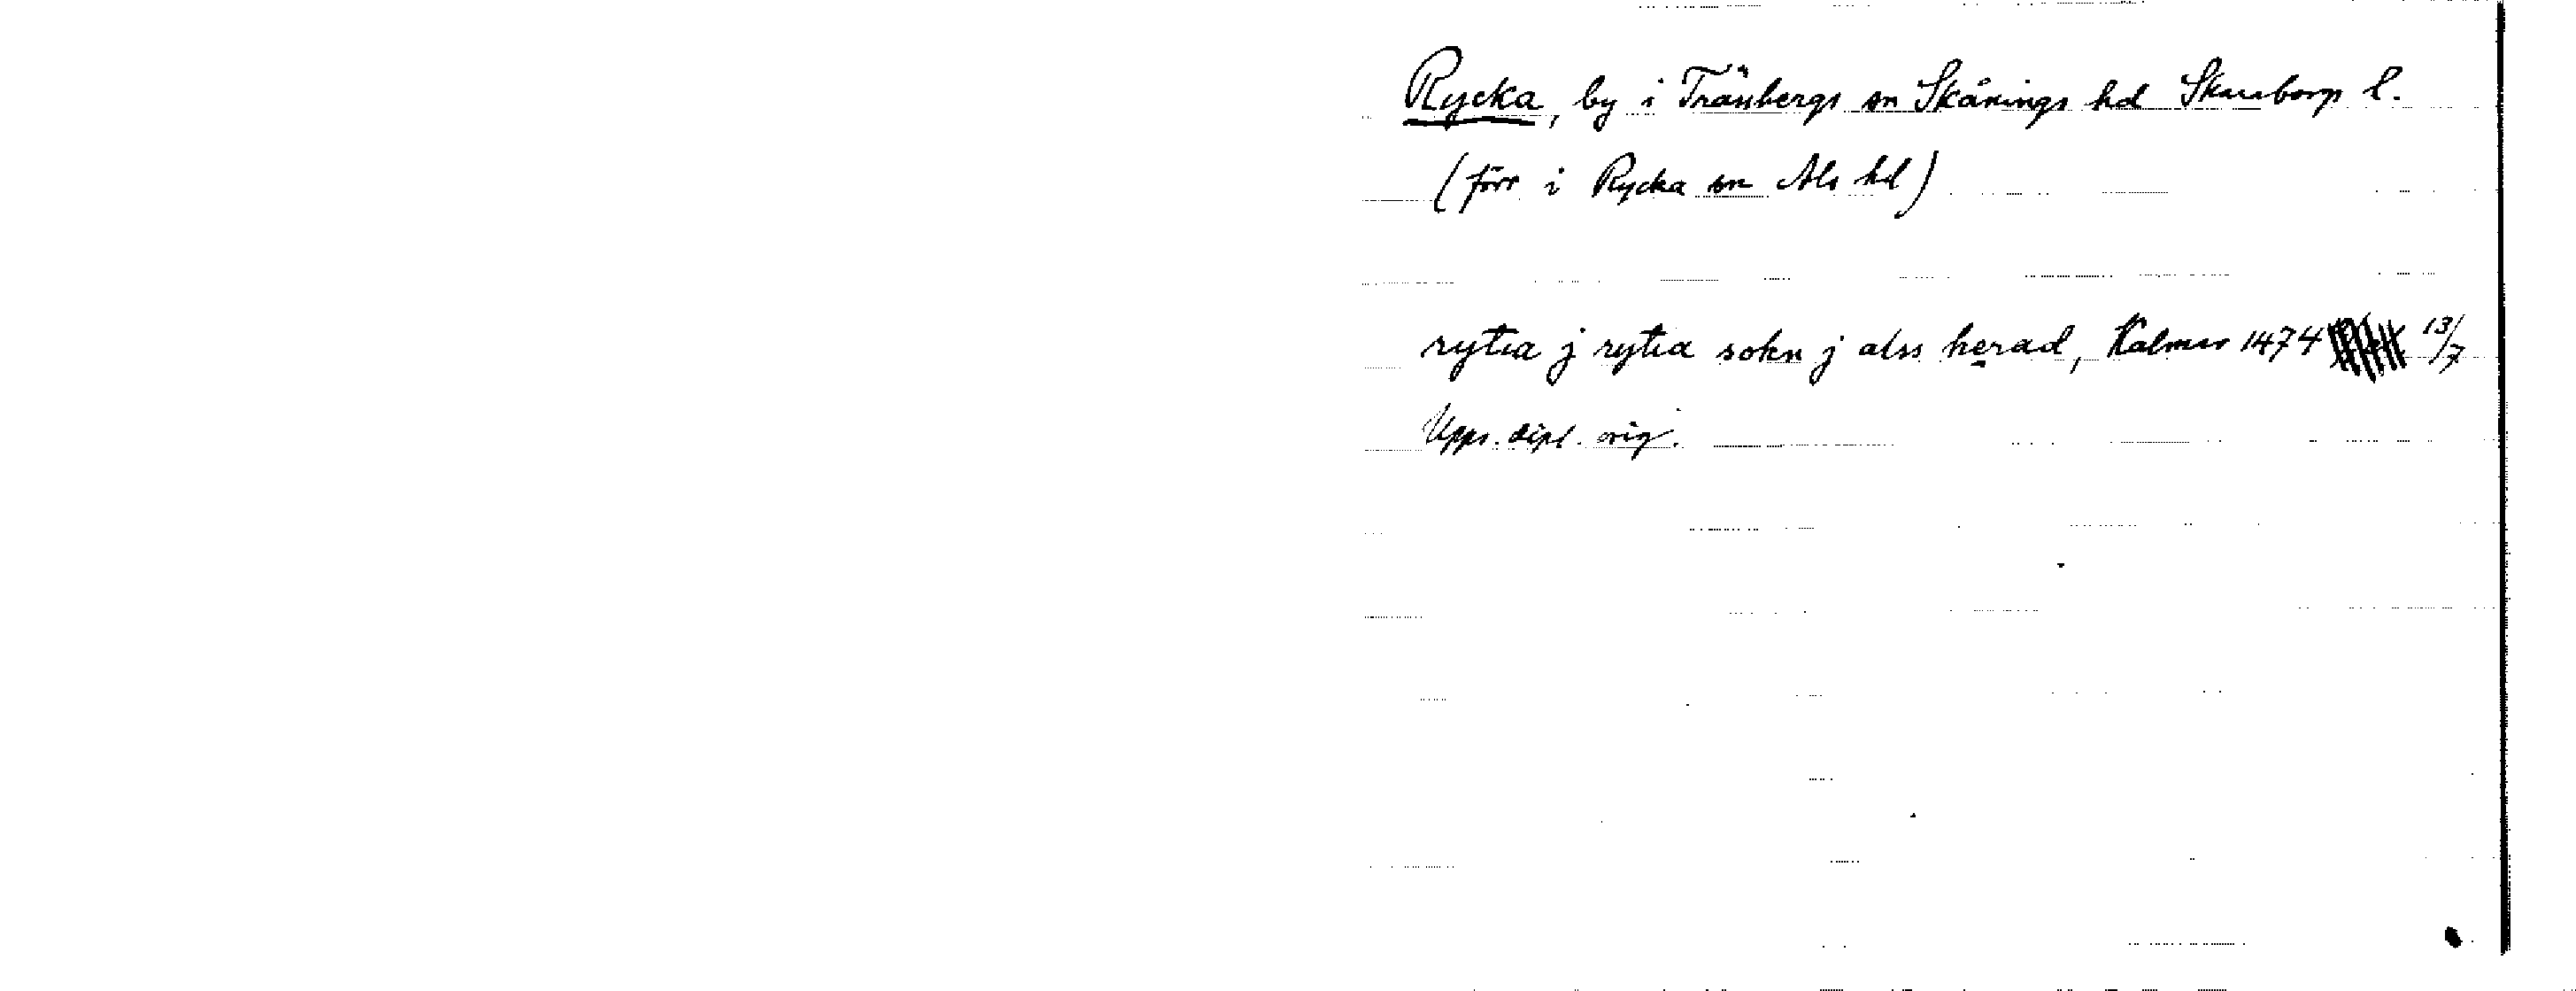 Rycka, by i Trävbergs sn Skånings hd Skarborgs l.
(förr i Rycka sn Als hd)
rytia j rytia sokn j alss herad, Kalmar 1474 13/7
Upps. dipl. orig.